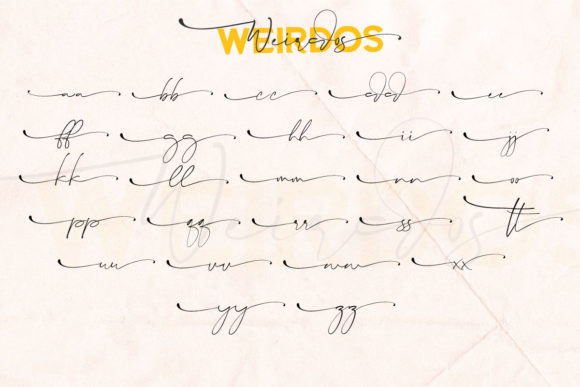 WEIRDOS
Weirdos
aa bb cc dd ee
ff gg hh ii jj
kk ll mm nn oo
pp qq rr ss tt
uu vv ww xx
yy zz
Weirdos